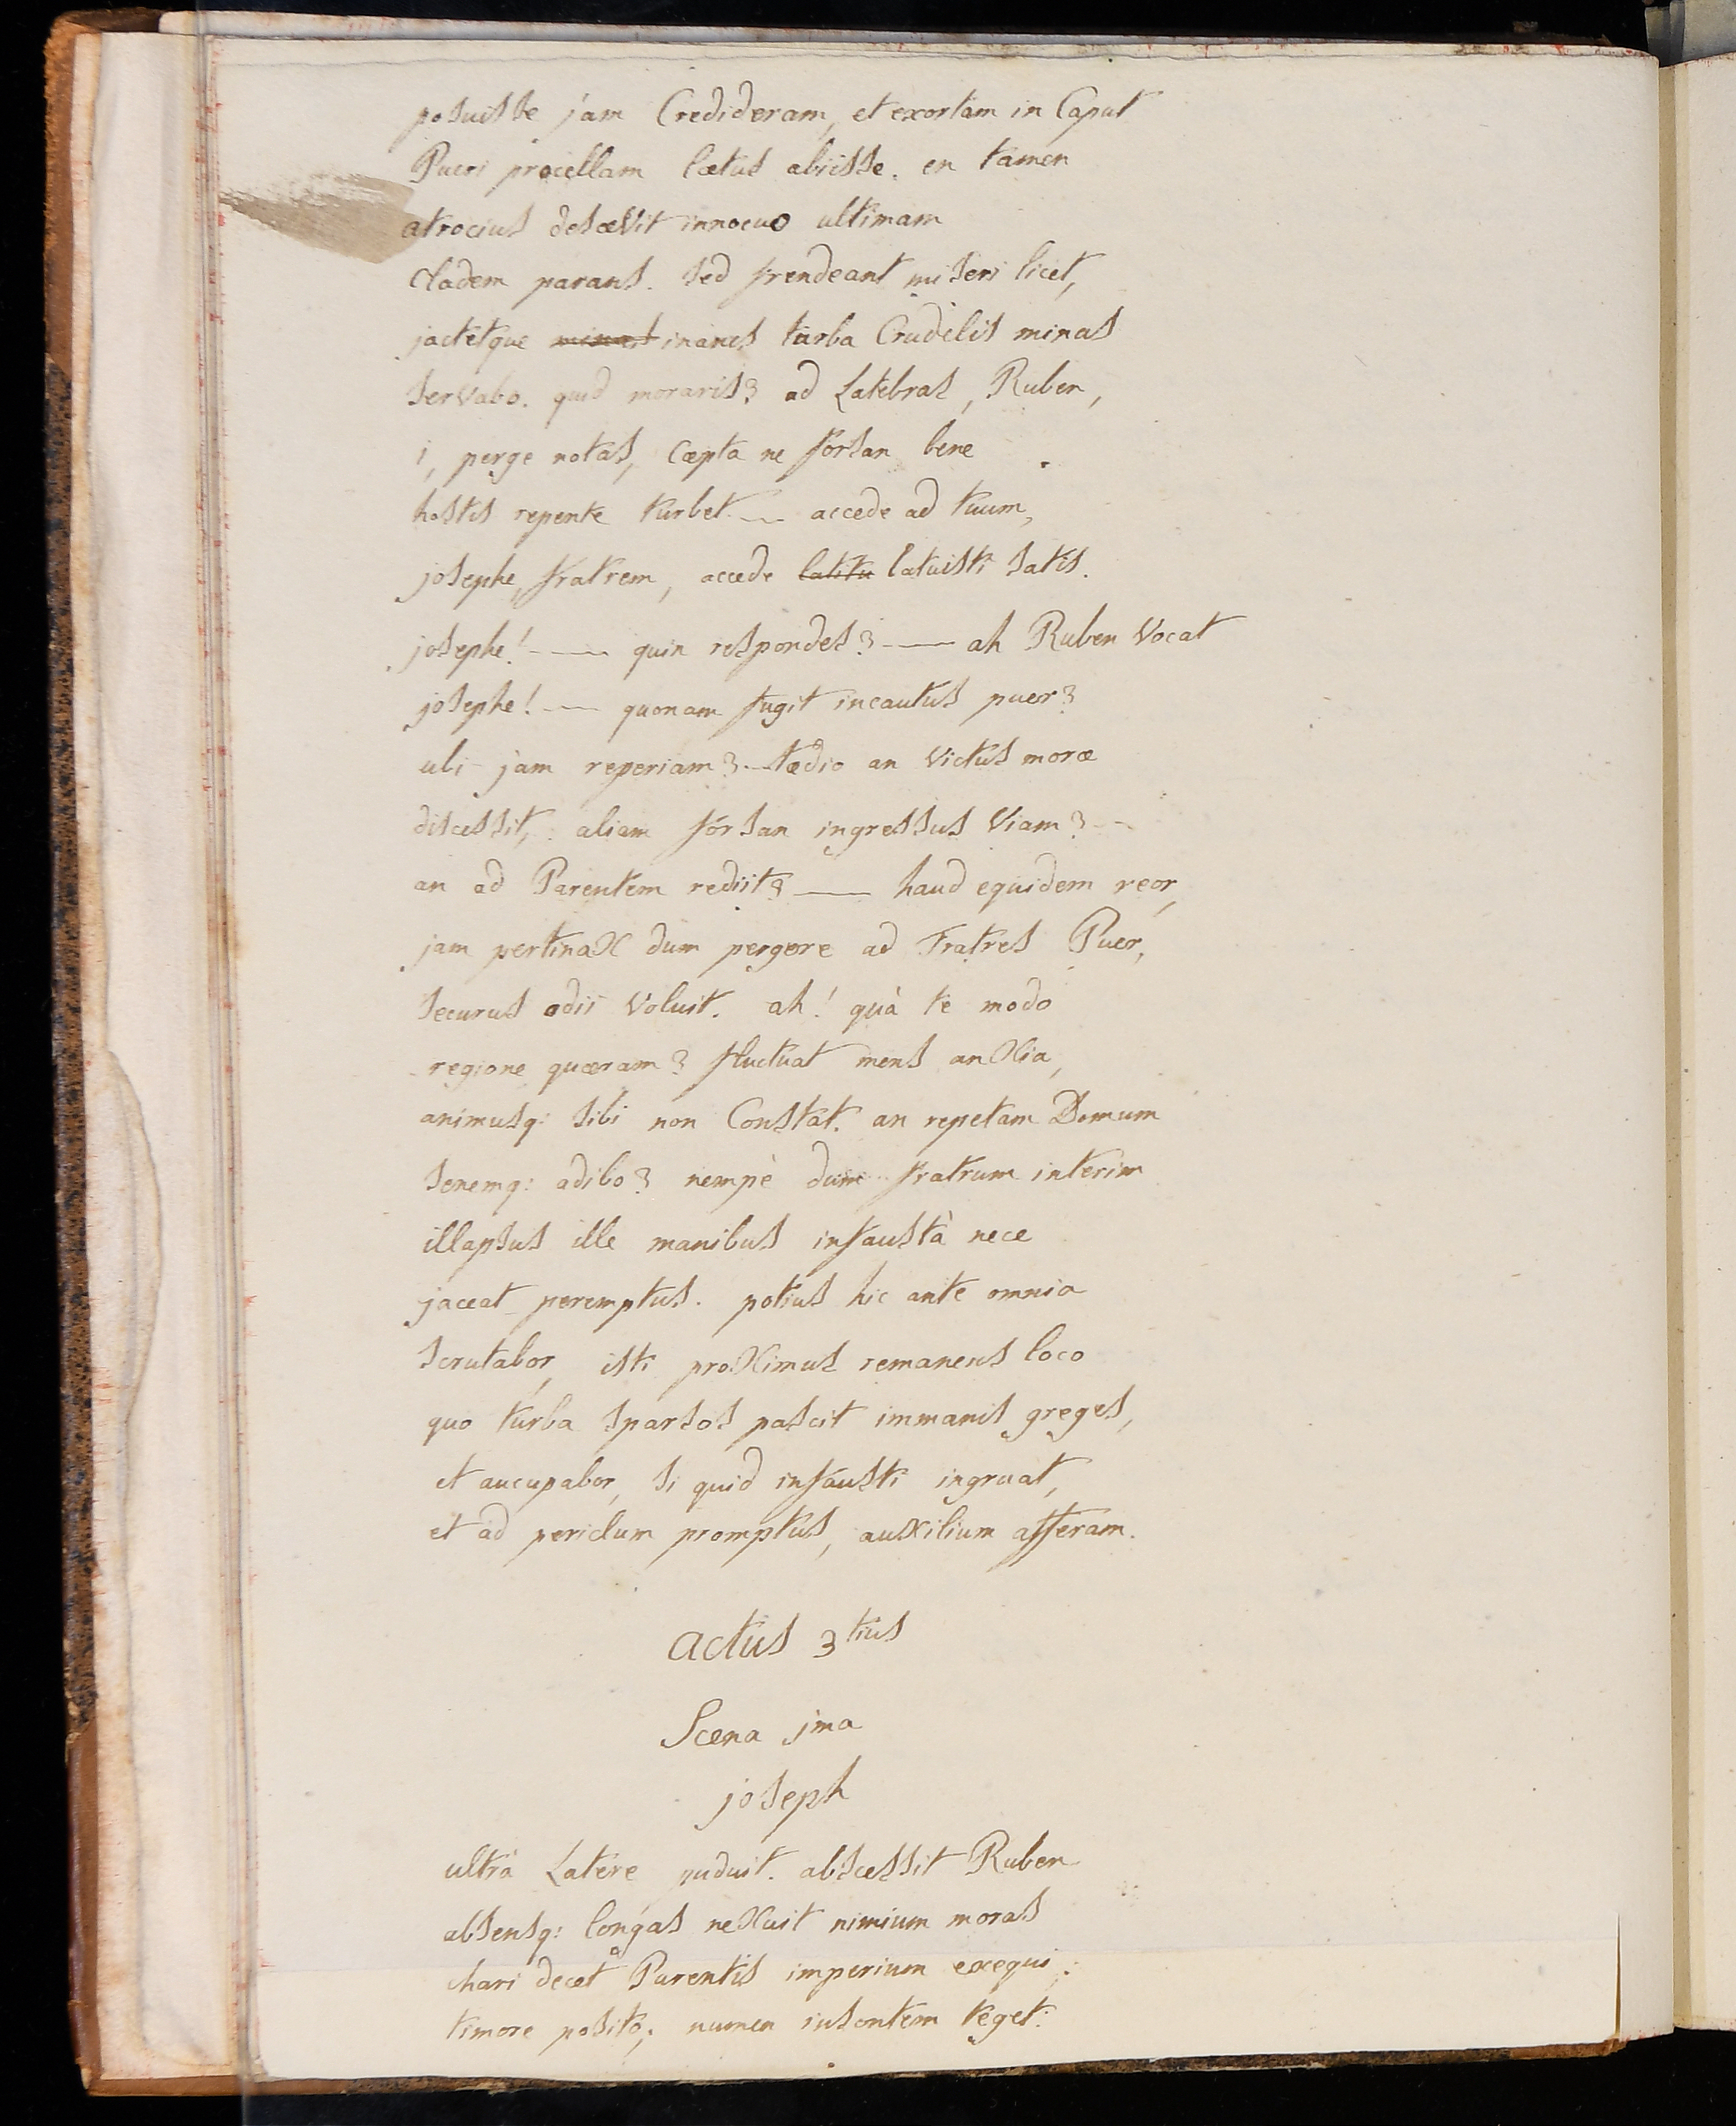 posuisse jam Credideram, et exortam in Caput
Pueri procellam lætus abiisse. en tamen
atrocius desæVit innocuo ultimam
Cladem parans. sed frendeant miseri licet,
jactetque ~~minas~~ inanes turba Crudelis minas
serVabo. quid moraris? ad Latebras, Ruben,
i, perge notas, cæpta ne forsan bene
hostis repente turbet. — accede ad tuum,
josephe, fratrem, accede ~~latitu~~ latuisti satis.
josephe! — quin respondes? — ah Ruben Vocat
josephe! — quonam fugit incautus puer?
ubi jam reperiam? — tædio an Victus moræ
discessit, aliam forsan ingressus Viam? —
an ad Parentem rediit? — haud equidem reor,
jam pertinaX dum pergere ad Fratres Puer,
securus odii Voluit. ah! quà te modo
regione quæram? fluctuat mens anXia,
animusq: sibi non Constat. an repetam Domum
senemq: adibo? nempè dum fratrum interim
illapsus ille manibus infaustà nece
jaceat peremptus. potius hic ante omnia
scrutabor, isti proXimus remanens loco
quo turba sparsos pascit immanis greges,
et aucupabor, si quid infausti ingruat,
et ad periclum promptus, auXilium afferam.
actus 3tius
Scena jma
joseph
ultrà Latere puduit. abscessit Ruben
absensq: longas neXuit nimium moras
chari decet Parentis imperium exequi:
timore posito; numen insontem teget.